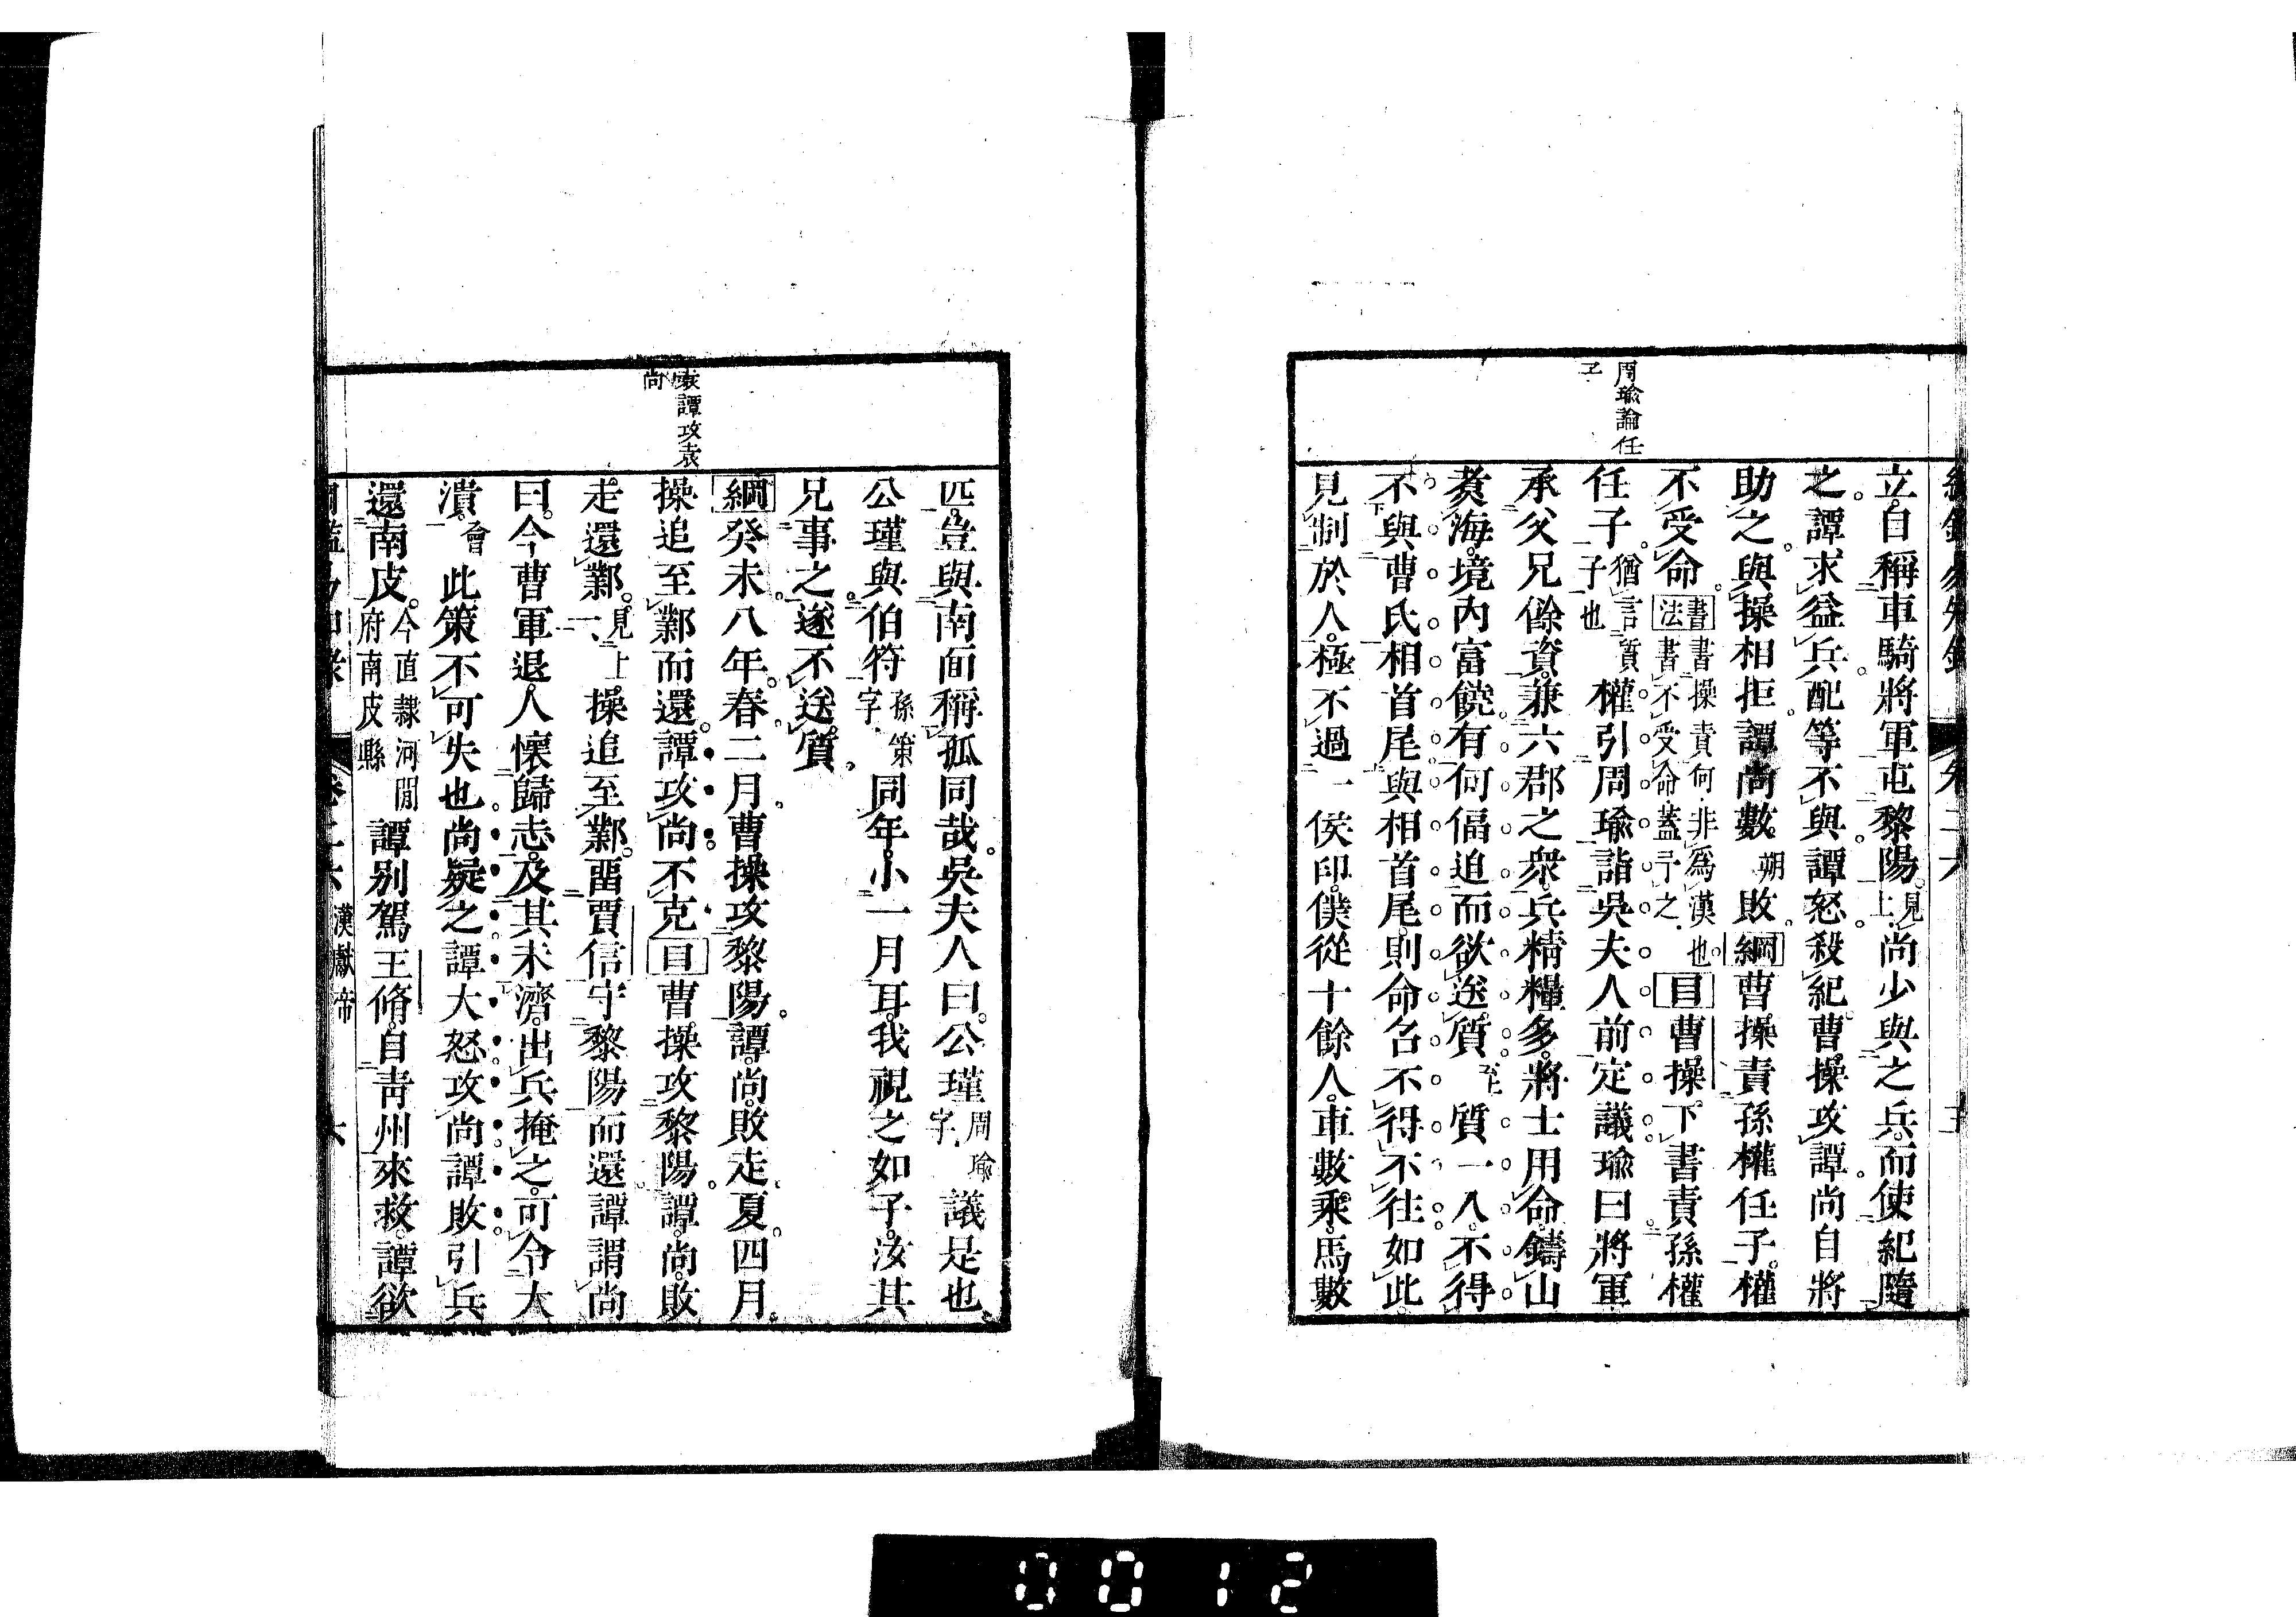 周瑜論任
子
立自稱車騎將軍屯黎陽見上尚少與之兵而使紀隨
之譚求益兵配等不與譚怒殺紀曹操攻譚尚自將
助之與操相拒譚尚數朔敗綱曹操責孫權任子權
不受命書法書操責何非爲漢也書不受命蓋予之目曹操下書責孫權
任子子猶言質子也權引周瑜詣吳夫人前定議瑜曰將軍
承父兄餘資兼六郡之衆兵精糧多將士用命鑄山
煑海境內富饒有何偪迫而欲送質至上質一入不得
不與曹氏相首尾與相首尾則命召不得不往如此
見制於人極不過一侯印僕從十餘人車數乘馬數
袁譚攻袁
尚
匹豈與南面稱孤同哉吳夫人曰公瑾周瑜字議是也
公瑾與伯符孫策字同年小一月耳我視之如子汝其
兄事之遂不送質
綱癸未八年春二月曹操攻黎陽譚尚敗走夏四月
操追至鄴而還譚攻尚不克目曹操攻黎陽譚尚敗
走還鄴見上操追至鄴畱賈信守黎陽而還譚謂尚
曰今曹軍退人懷歸志及其未濟出兵掩之可令大
潰會此策不可失也尚疑之譚大怒攻尚譚敗引兵
還南皮今直隸河閒府南皮縣譚別駕王脩自靑州來救譚欲
漢獻帝
六
0012